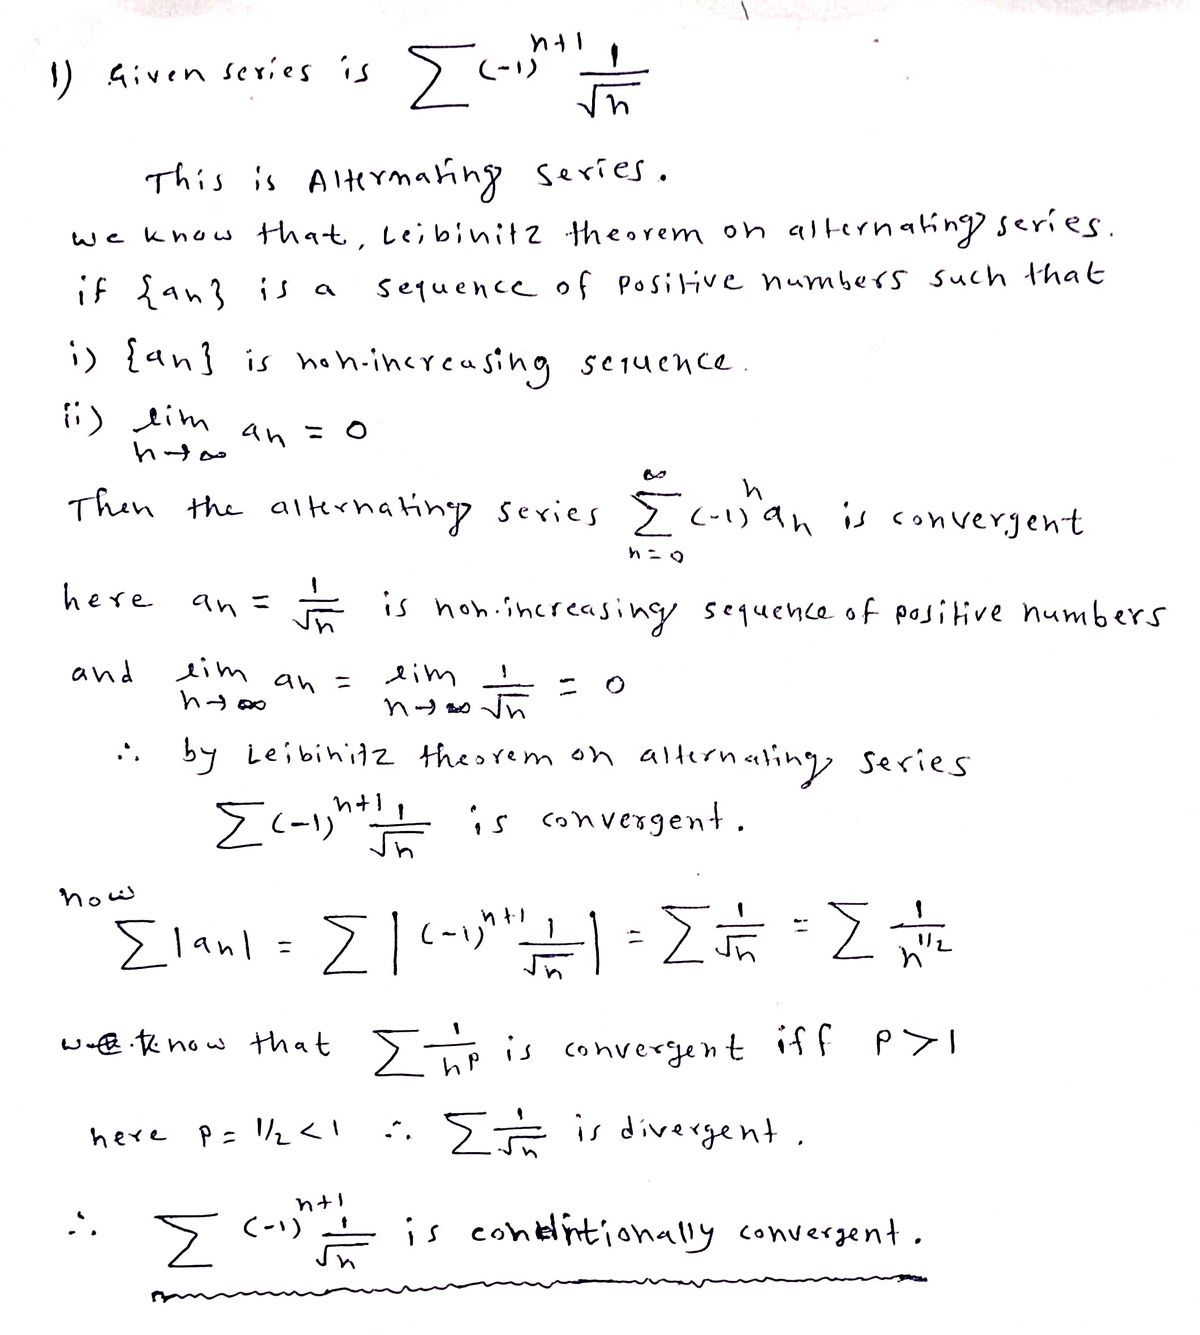 1) Given series is ∑ (-1)^{n+1} 1/√n
This is Alternating series.
we know that, Leibinitz theorem on alternating series.
if {an} is a sequence of positive numbers such that
i) {an} is non-increasing sequence.
ii) lim n→∞ an = 0
Then the alternating series ∑_{n=0}^{∞} (-1)^n an is convergent
here an = 1/√n is non-increasing sequence of positive numbers
and lim n→∞ an = lim n→∞ 1/√n = 0
∴ by Leibinitz theorem on alternating series
∑(-1)^{n+1} 1/√n is convergent.
now
∑|an| = ∑|(-1)^{n+1} 1/√n| = ∑ 1/√n = ∑ 1/n^{1/2}
we know that ∑ 1/n^p is convergent iff P>1
here P = 1/2 < 1 ∴ ∑ 1/√n is divergent.
∴ ∑ (-1)^{n+1} 1/√n is conditionally convergent.